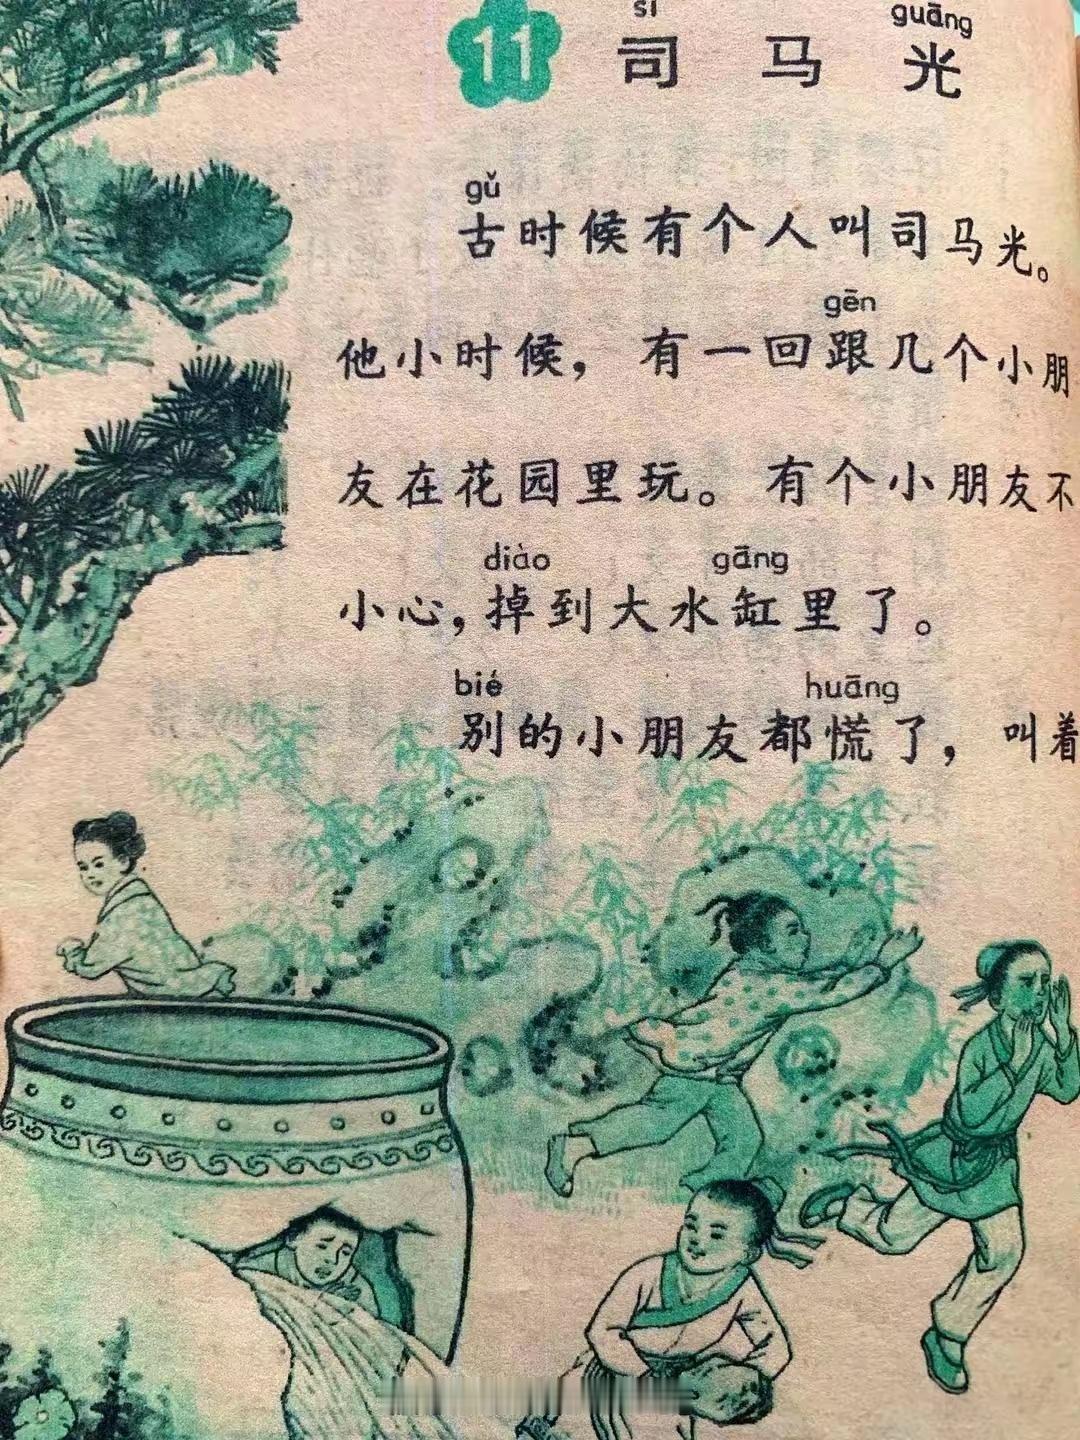 11 司马光
sī guāng
gǔ
古时候有个人叫司马光。
gēn
他小时候，有一回跟几个小朋
友在花园里玩。有个小朋友不
diào gāng
小心，掉到大水缸里了。
bié huāng
别的小朋友都慌了，叫着